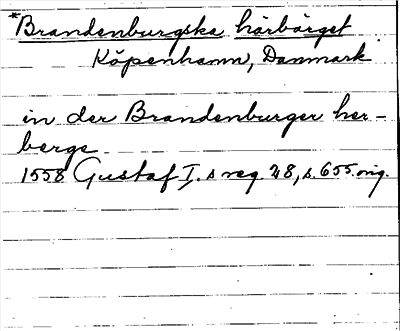 *Brandenburgska härbärget
Köpenhamn, Danmark
in der Brandenburger her-
berge
1558 Gustaf I.s reg. 28, s. 655. orig.